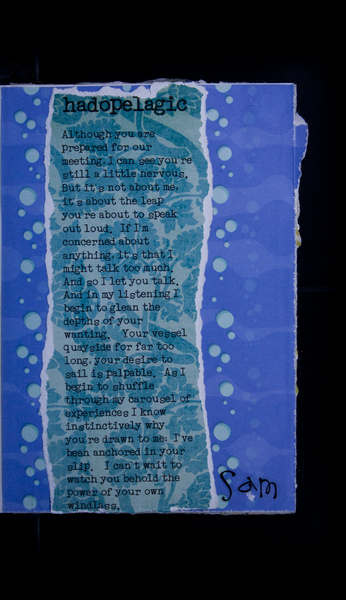 hadopelagic
Although you are
prepared for our
meeting, I can see you're
still a little nervous.
But it's not about me,
it's about the leap
you're about to speak
out loud. If I'm
concerned about
anything, it's that I
might talk too much.
And so I let you talk.
And in my listening I
begin to glean the
depths of your
wanting. Your vessel
quayside for far too
long, your desire to
sail is palpable. As I
begin to shuffle
through my carousel of
experiences I know
instinctively why
you're drawn to me: I've
been anchored in your
slip. I can't wait to
watch you behold the
power of your own
windlass.
Sam